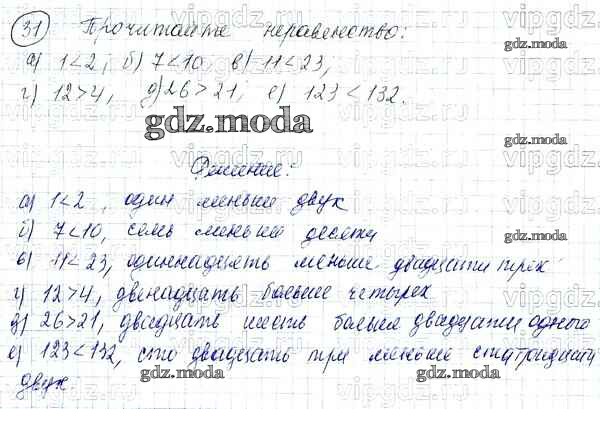 31 Прочитайте неравенство:
а) 1<2; б) 7<10, в) 11<23,
г) 12>4, д) 26>21; е) 123<132.
gdz.moda
Решение:
а) 1<2, один меньше двух
б) 7<10, семь меньше десяти
в) 11<23, одиннадцать меньше двадцати трёх
г) 12>4, двенадцать больше четырех
д) 26>21, двадцать шесть больше двадцати одного
е) 123<132, сто двадцать три меньше ста тридцати
двух.
gdz.moda
gdz.moda
gdz.moda
gdz.moda
vipgdz.com